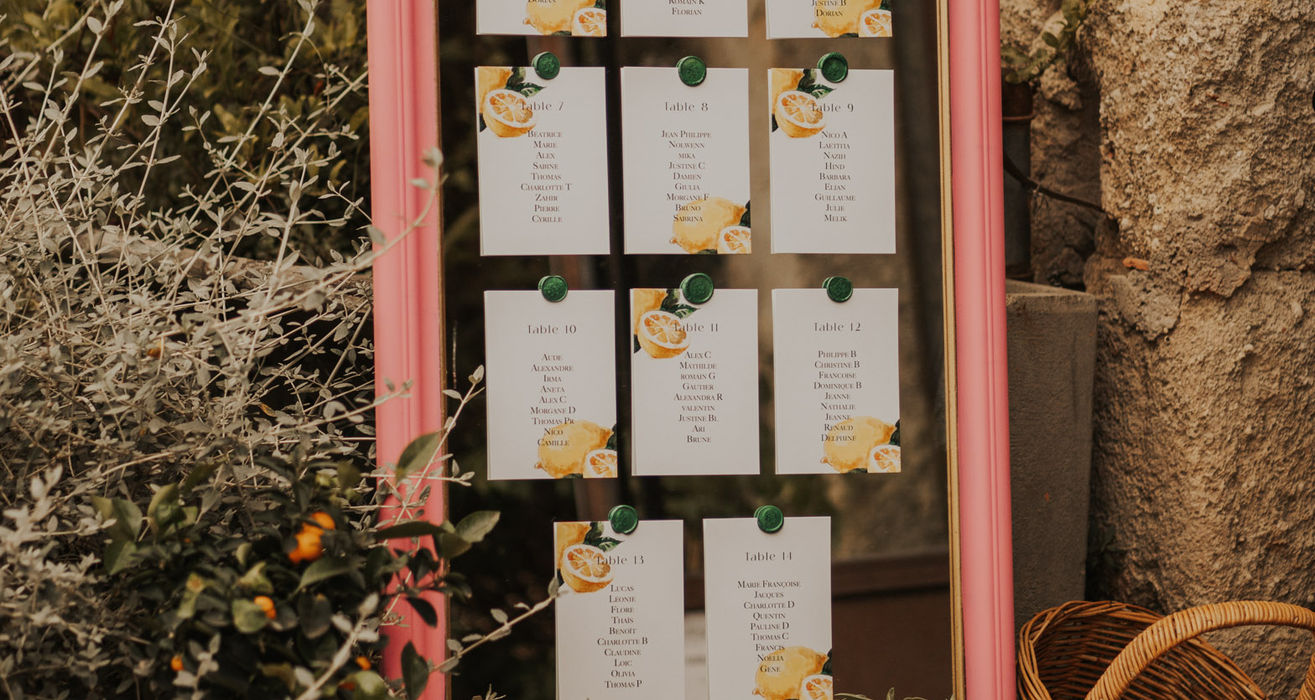 Dorian
Romain K
Florian
Justine B
Dorian
Table 7
Béatrice
Marie
Alex
Sabine
Thomas
Charlotte T
Zahir
Pierre
Cyrille
Table 8
Jean Philippe
Nolwenn
mika
Justine C
Damien
Giulia
Morgane F
Bruno
Sabrina
Table 9
Nico A
Laetitia
Nazih
Hind
Barbara
Elian
Guillaume
Julie
Melik
Table 10
Aude
Alexandre
Irma
Aneta
Alex C
Morgane D
Thomas Pr
Nico
Camille
Table 11
Alex C
Mathilde
romain G
Gautier
Alexandra R
valentin
Justine Bl
Ari
Brune
Table 12
Philippe B
Christine B
Francoise
Dominique B
Jeanne
Nathalie
Jeanne
Renaud
Delphine
Table 13
Lucas
Léonie
Flore
Thais
Benoît
Charlotte B
Claudine
Loic
Olivia
Thomas P
Table 14
Marie Françoise
Jacques
Charlotte D
Quentin
Pauline D
Thomas C
Francis
Noélia
Gene